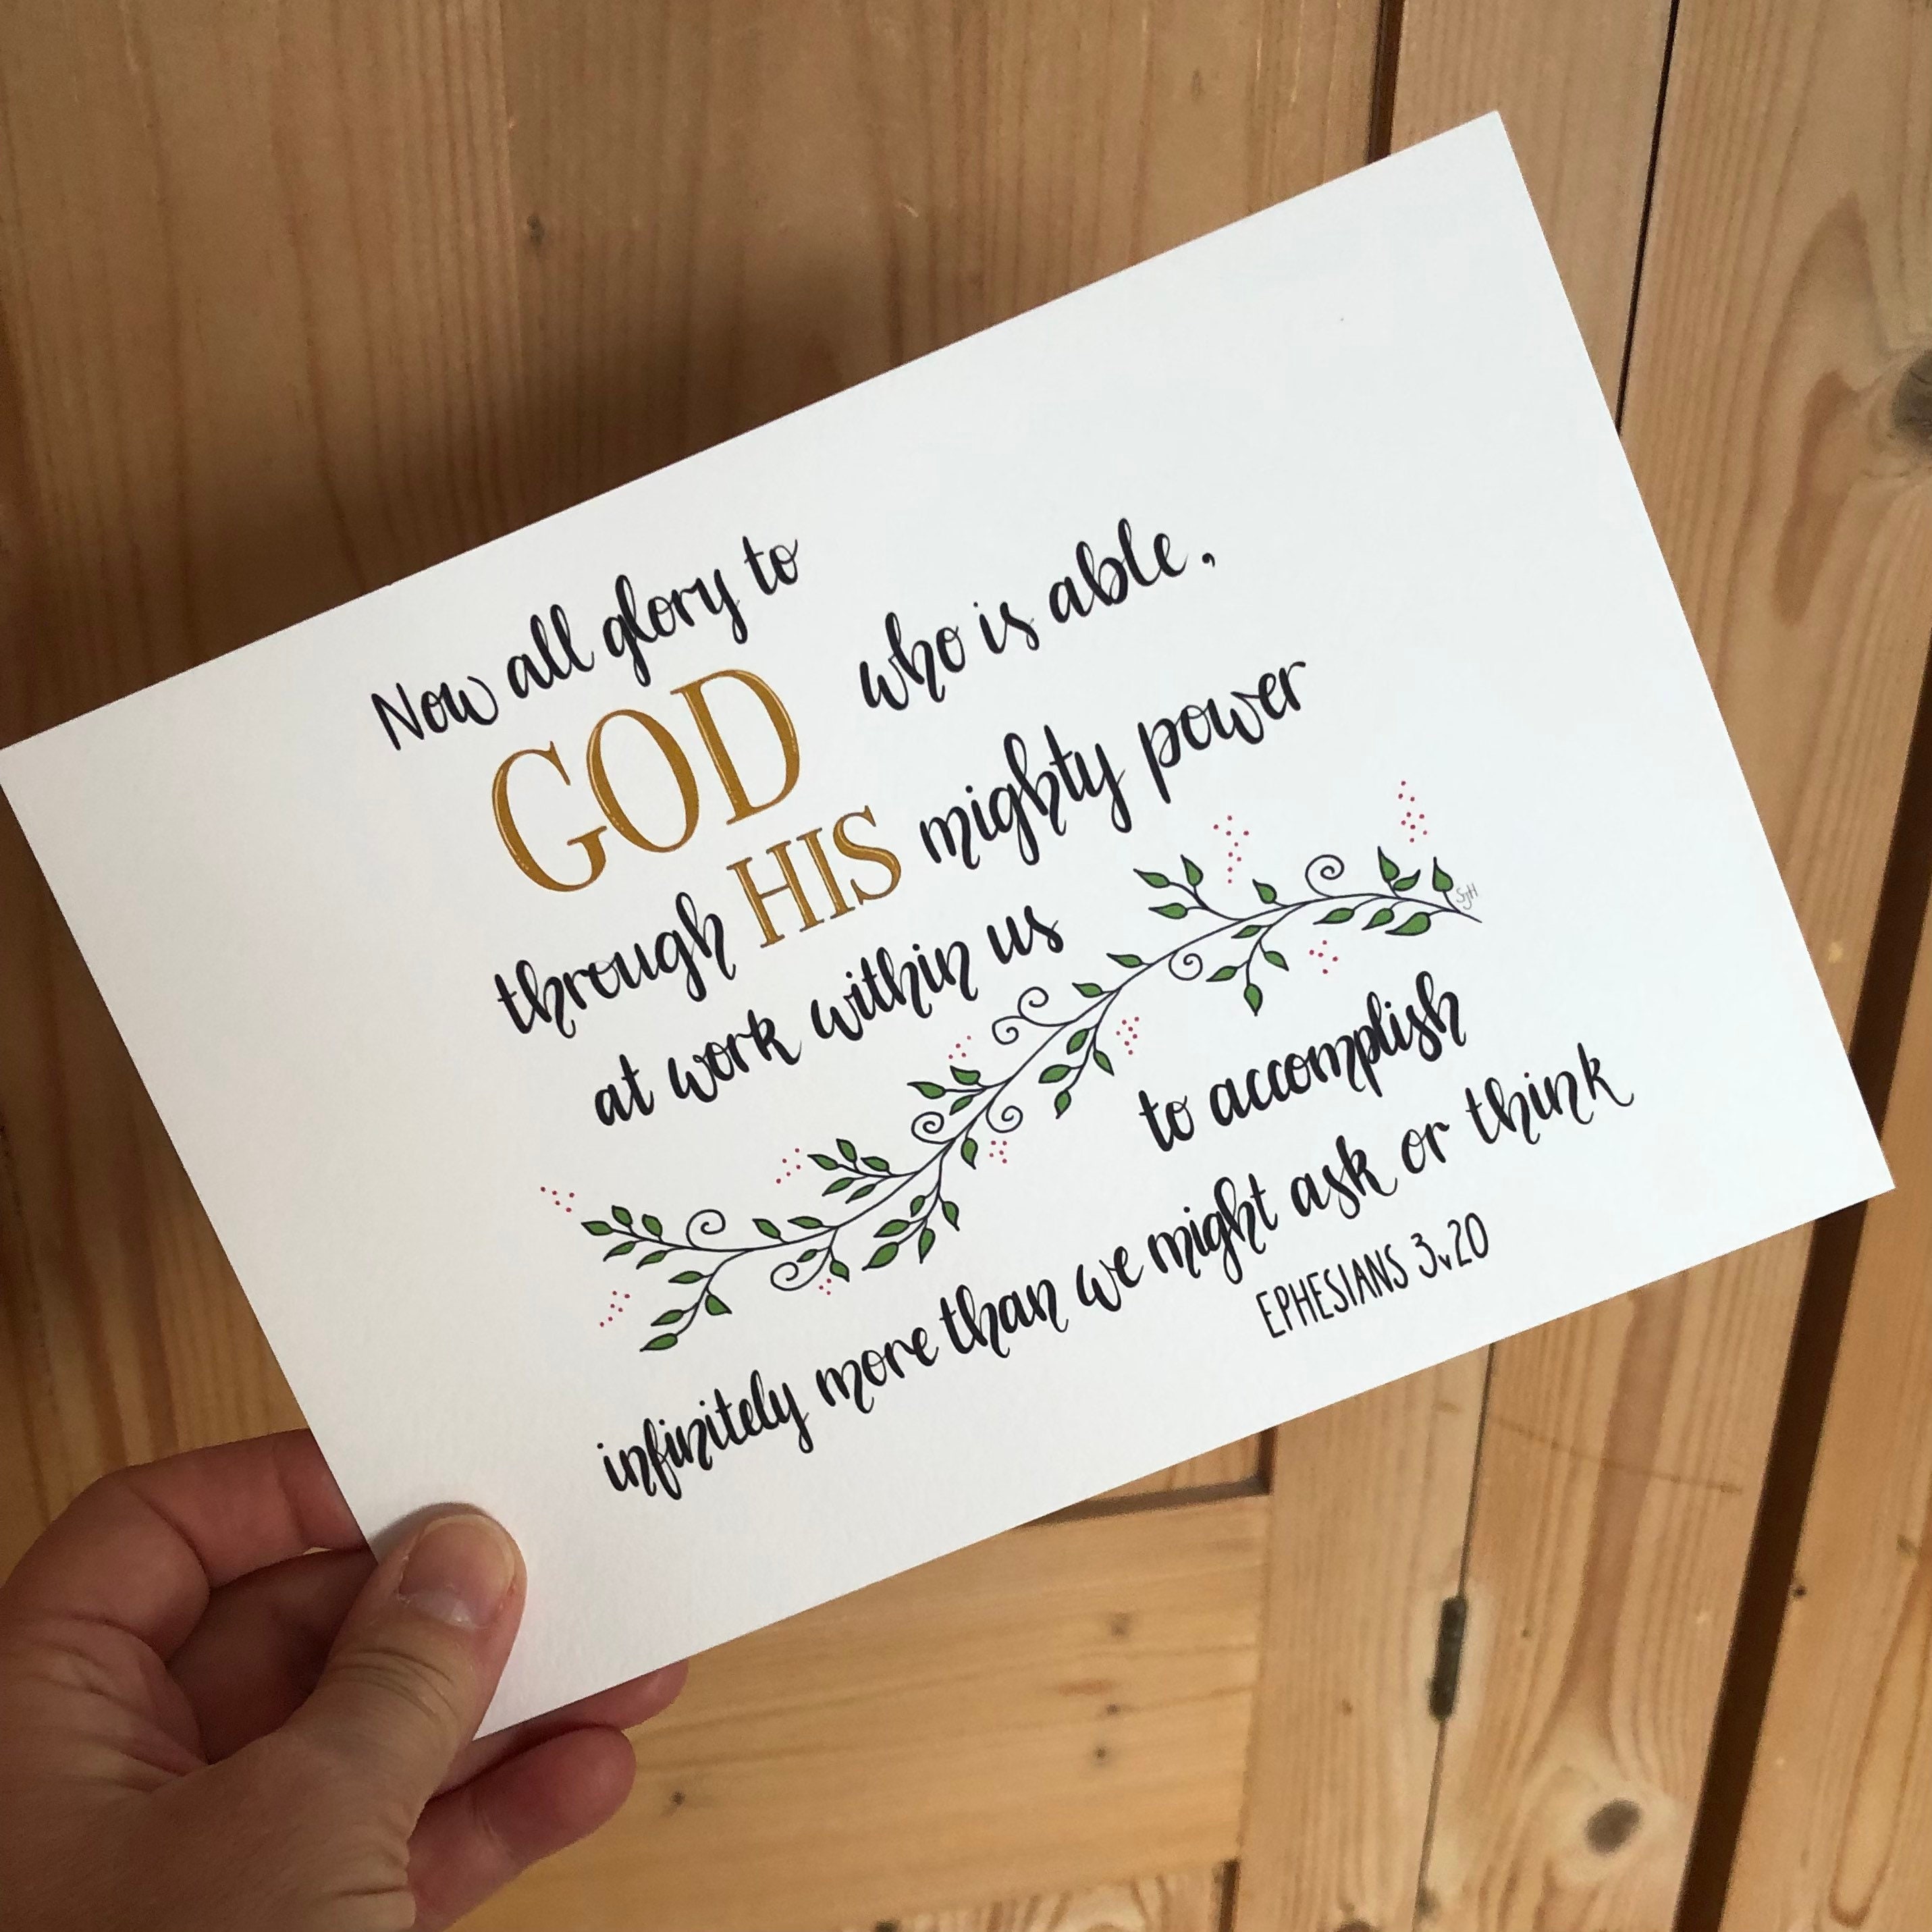 Now all glory to
GOD who is able,
through HIS mighty power
at work within us
SJH
to accomplish
infinitely more than we might ask or think
EPHESIANS 3v20